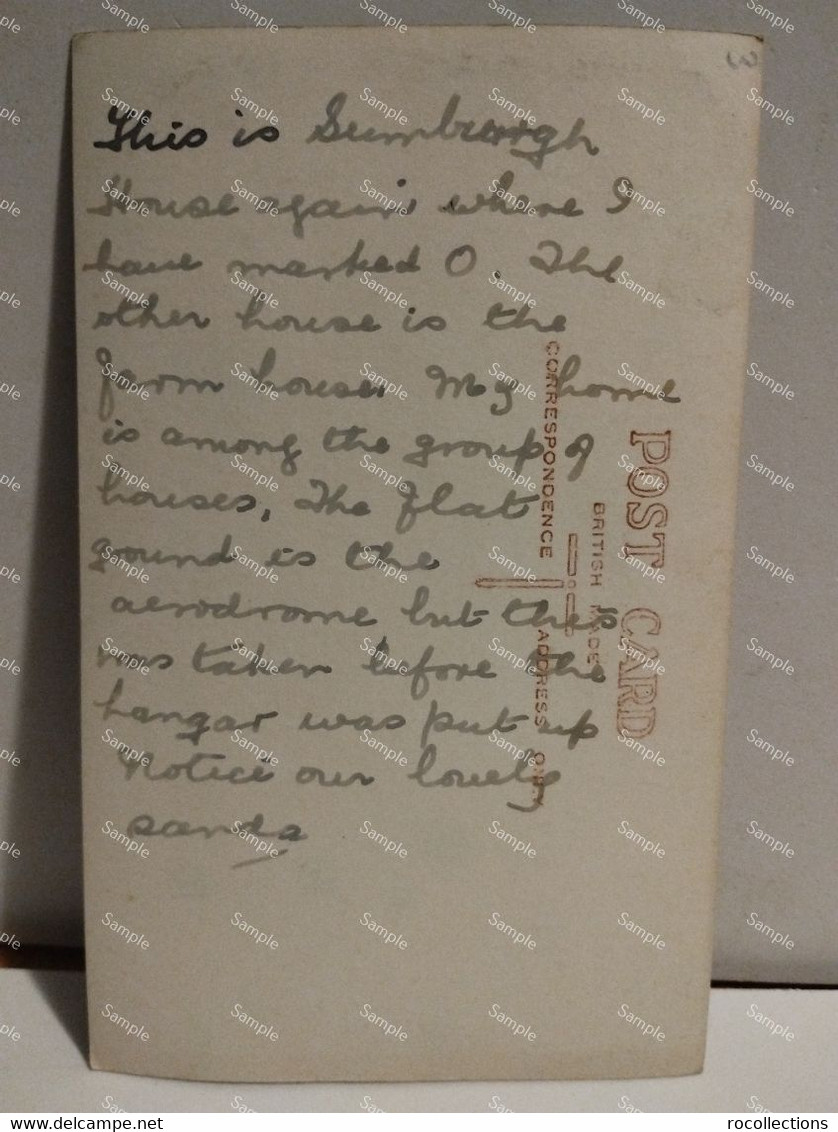 This is Sumburgh
House again where I
have marked O. The
other house is the
farm house. My home
is among the group of
houses, The flat
ground is the
aerodrome but this
was taken before the
hangar was put up
Notice our lovely
sands
POST CARD
BRITISH MADE
CORRESPONDENCE
ADDRESS ONLY
Sample
www.delcampe.net
rocollections